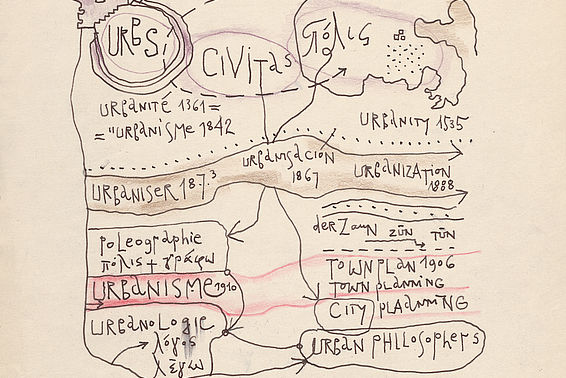 URBS
CIVITas
πόλις
URBANITÉ 1361 =
= "URBANISME 1842
URBANITY 1535
URBANISACION
1867
URBANIZATION
1888
URBANISER 187.3
derZaun ZŪN TŪN
POLeOgraphie
πόλις + γράφω
TOWN PLAN 1906
TOWN planning
URBANISMe 1910
CITY PLAANNING
URBANOLOGIE
λόγος
λέγω
URBAN PHILOSOPHeRS